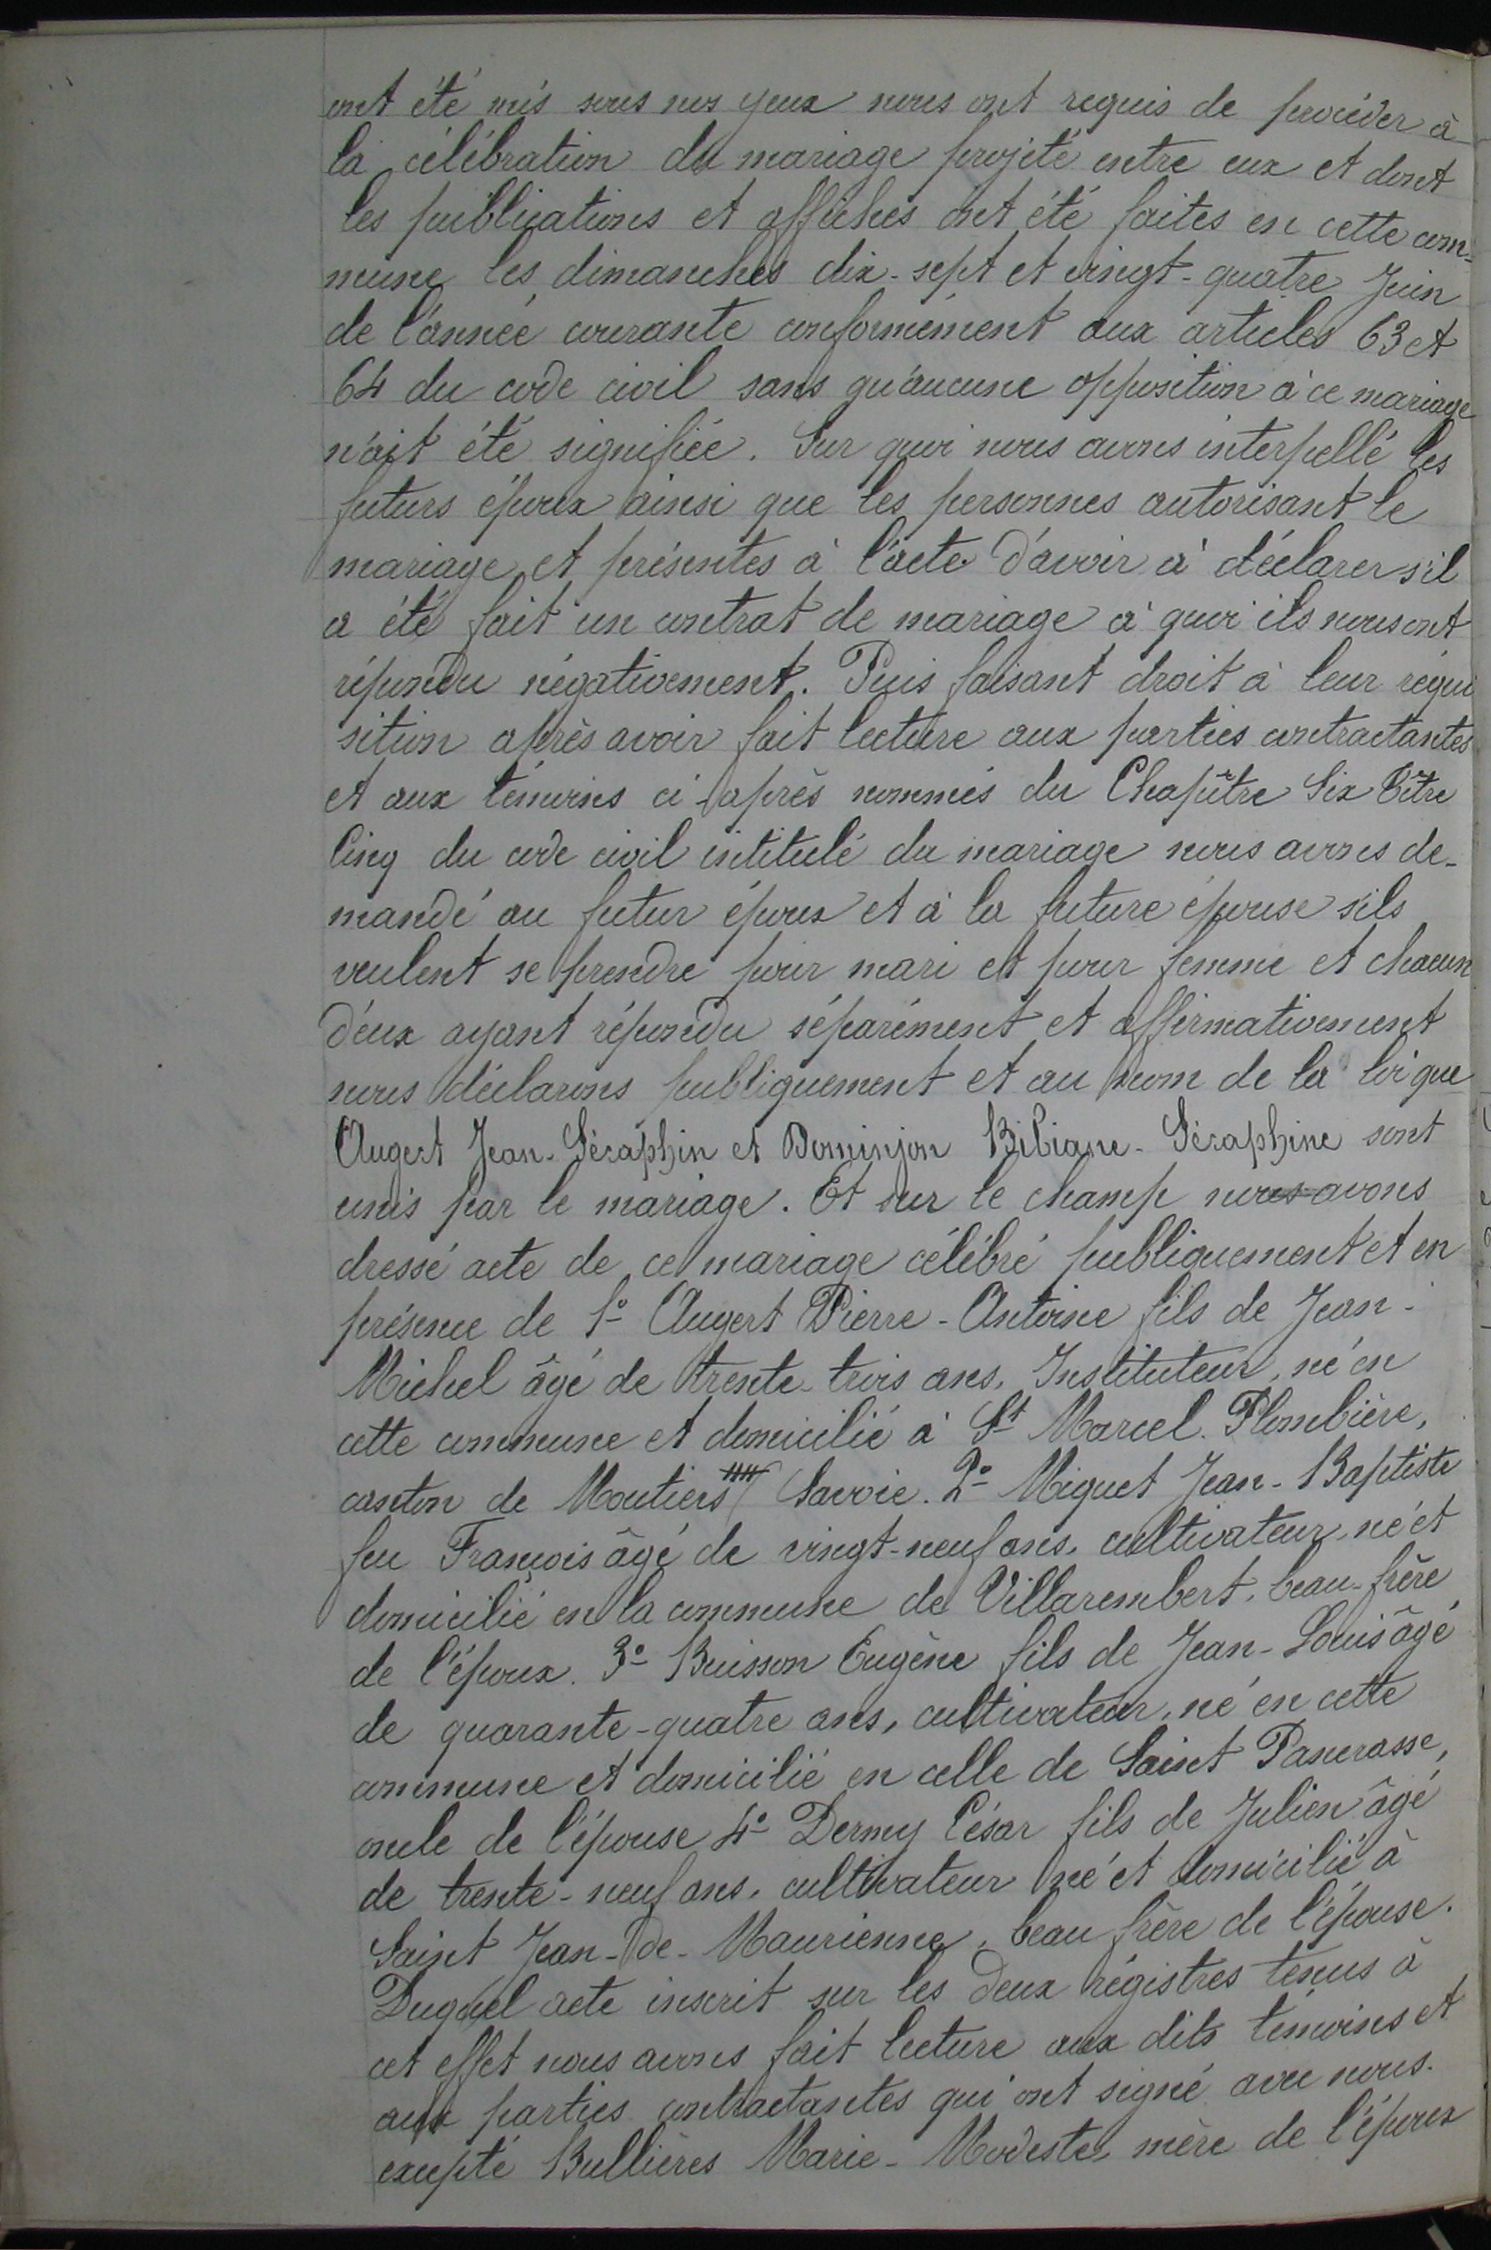 ont été mis sous nos yeux nous ont requis de procéder à
la célébration du mariage projeté entre eux et dont
les publications et affiches ont été faites en cette com-
mune les dimanches dix-sept et vingt-quatre Juin
de l'année courante conformément aux articles 63 et
64 du code civil sans qu'aucune opposition à ce mariage
n'ait été signifiée. Sur quoi nous avons interpellé les
futurs époux ainsi que les personnes autorisant le
mariage et présentes à l'acte d'avoir à déclarer s'il
a été fait un contrat de mariage à quoi ils nous ont
répondu négativement. Puis faisant droit à leur réqui
sition après avoir fait lecture aux parties contractantes
et aux témoins ci-après nommés du Chapître Six Titre
Cinq du code civil intitulé du mariage nous avons de-
mandé au futur époux et à la future épouse s'ils
veulent se prendre pour mari et pour femme et chacun
d'eux ayant répondu séparément et affirmativement
nous déclarons publiquement et au nom de la loi que
Augert Jean-Séraphin et Dominjon Bibiane-Séraphine sont
unis par le mariage. Et sur le champ nous avons
dressé acte de ce mariage célébré publiquement et en
présence de 1° Augert Pierre-Antoine fils de Jean-
Michel âgé de trente-trois ans, Instituteur, né en
cette commune et domicilié à St Marcel. Plombière,
canton de Moutiers Savoie. 2° Miquet Jean-Baptiste
feu François âgé de vingt-neuf ans, cultivateur, né et
domicilié en la commune de Villarembert, beau-frère
de l'époux. 3° Buisson Eugène fils de Jean-Louis âgé
de quarante-quatre ans, cultivateur, né en cette
commune et domicilié en celle de Saint Pancrasse,
oncle de l'épouse 4° Dermy César fils de Julien âgé
de trente-neuf ans, cultivateur né et domicilié à
Saint Jean-de-Maurienne, beau frère de l'épouse.
Duquel acte inscrit sur les deux régistres tenus à
cet effet nous avons fait lecture aux dits témoins et
aux parties contractantes qui ont signé avec nous.
excepté Bullières Marie-Modeste, mère de l'époux